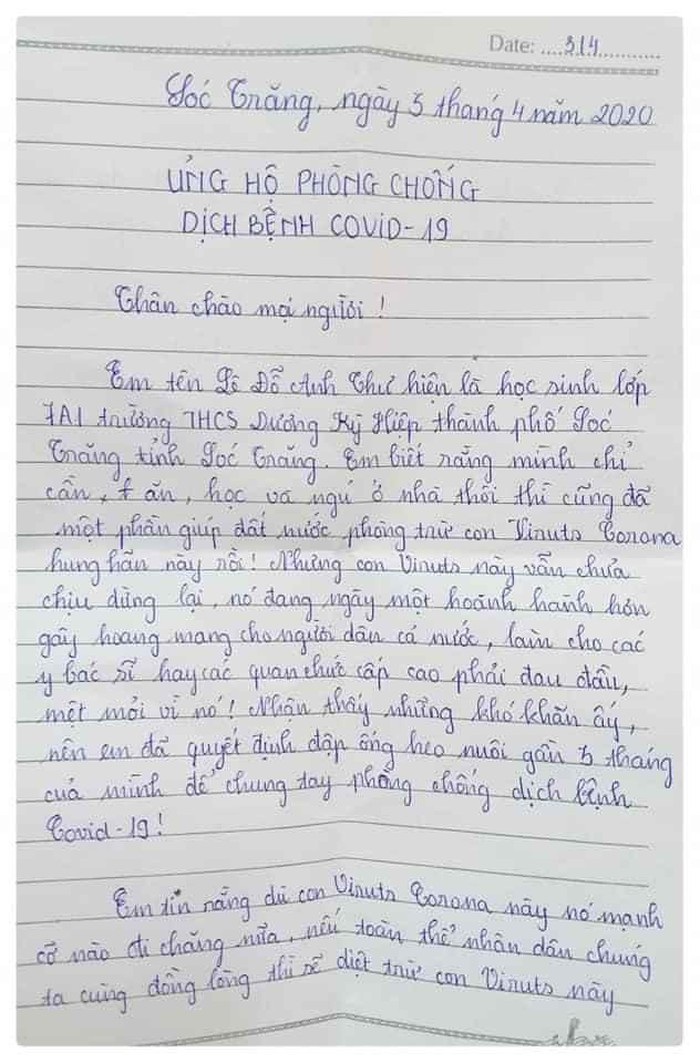 Date: ....3/4...........
Sóc Trăng, ngày 3 tháng 4 năm 2020
ỦNG HỘ PHÒNG CHỐNG
DỊCH BỆNH COVID-19
Thân chào mọi người !
Em tên Lê Đỗ Anh Thư hiện là học sinh lớp
7A1 trường THCS Dương Kỳ Hiệp thành phố Sóc
Trăng tỉnh Sóc Trăng. Em biết rằng mình chỉ
cần, ăn, học và ngủ ở nhà thôi thì cũng đã
một phần giúp đất nước phòng trừ con Viruts Corona
hung hãn này rồi! Nhưng con Viruts này vẫn chưa
chịu dừng lại, nó đang ngày một hoành hành hơn
gây hoang mang cho người dân cả nước, làm cho các
y bác sĩ hay các quan chức cấp cao phải đau đầu,
mệt mỏi vì nó! Nhận thấy những khó khăn ấy,
nên em đã quyết định đập ống heo nuôi gần 3 tháng
của mình để chung tay phòng chống dịch bệnh
Covid-19!
Em tin rằng dù con Viruts Corona này nó mạnh
cỡ nào đi chăng nữa, nếu toàn thể nhân dân chúng
ta cùng đồng lòng thì sẽ diệt trừ con Viruts này